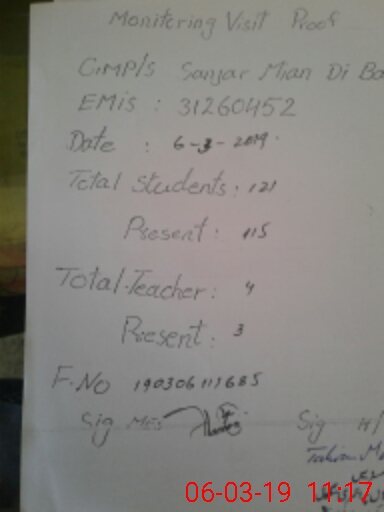 Monitering Visit Proof
G.MP/s Sanjar Mian Di Ba
EMis : 31260452
Date : 6-3-2019.
Total Students: 121
Present: 115
Total-Teacher: 4
Present: 3
F.No 190306111685
Sig MEs Sig H/
06-03-19 11:17